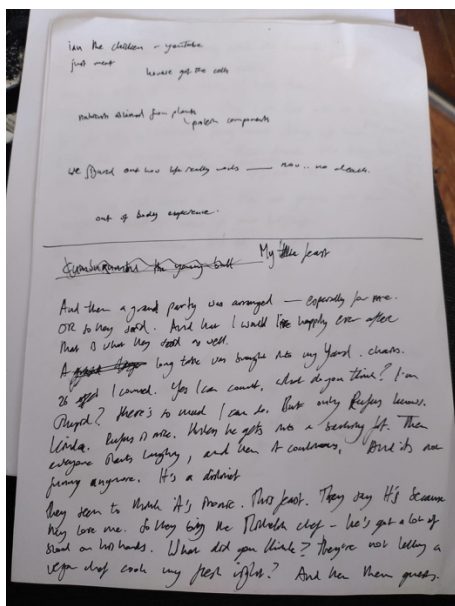 ian the chicken - youtube
just meat
harvest got the cells
nutrients obtained from plants
protein components
we figured out how life really works — now .. no death.
out of body experience.
the young bull My feast
And then a grand party was arranged — especially for me.
OR so they said. And that I would live happily ever after
that is what they said as well.
A long table was brought into my yard. chairs.
26 I counted. Yes I can count, what do you think? I'm
stupid? There's so much I can do. But only Rufus knows.
Kinda. Rufus is nice. When he gets into a fit. Then
everyone starts laughing, and then it continues, And it's not
funny anymore. It's a
they seem to think it's ironic. This feast. They say it's because
they love me. So they bring the Michelin chef - he's got a lot of
blood on his hands. What did you think? They're not letting a
vegan chef cook my flesh right? And then them guests.